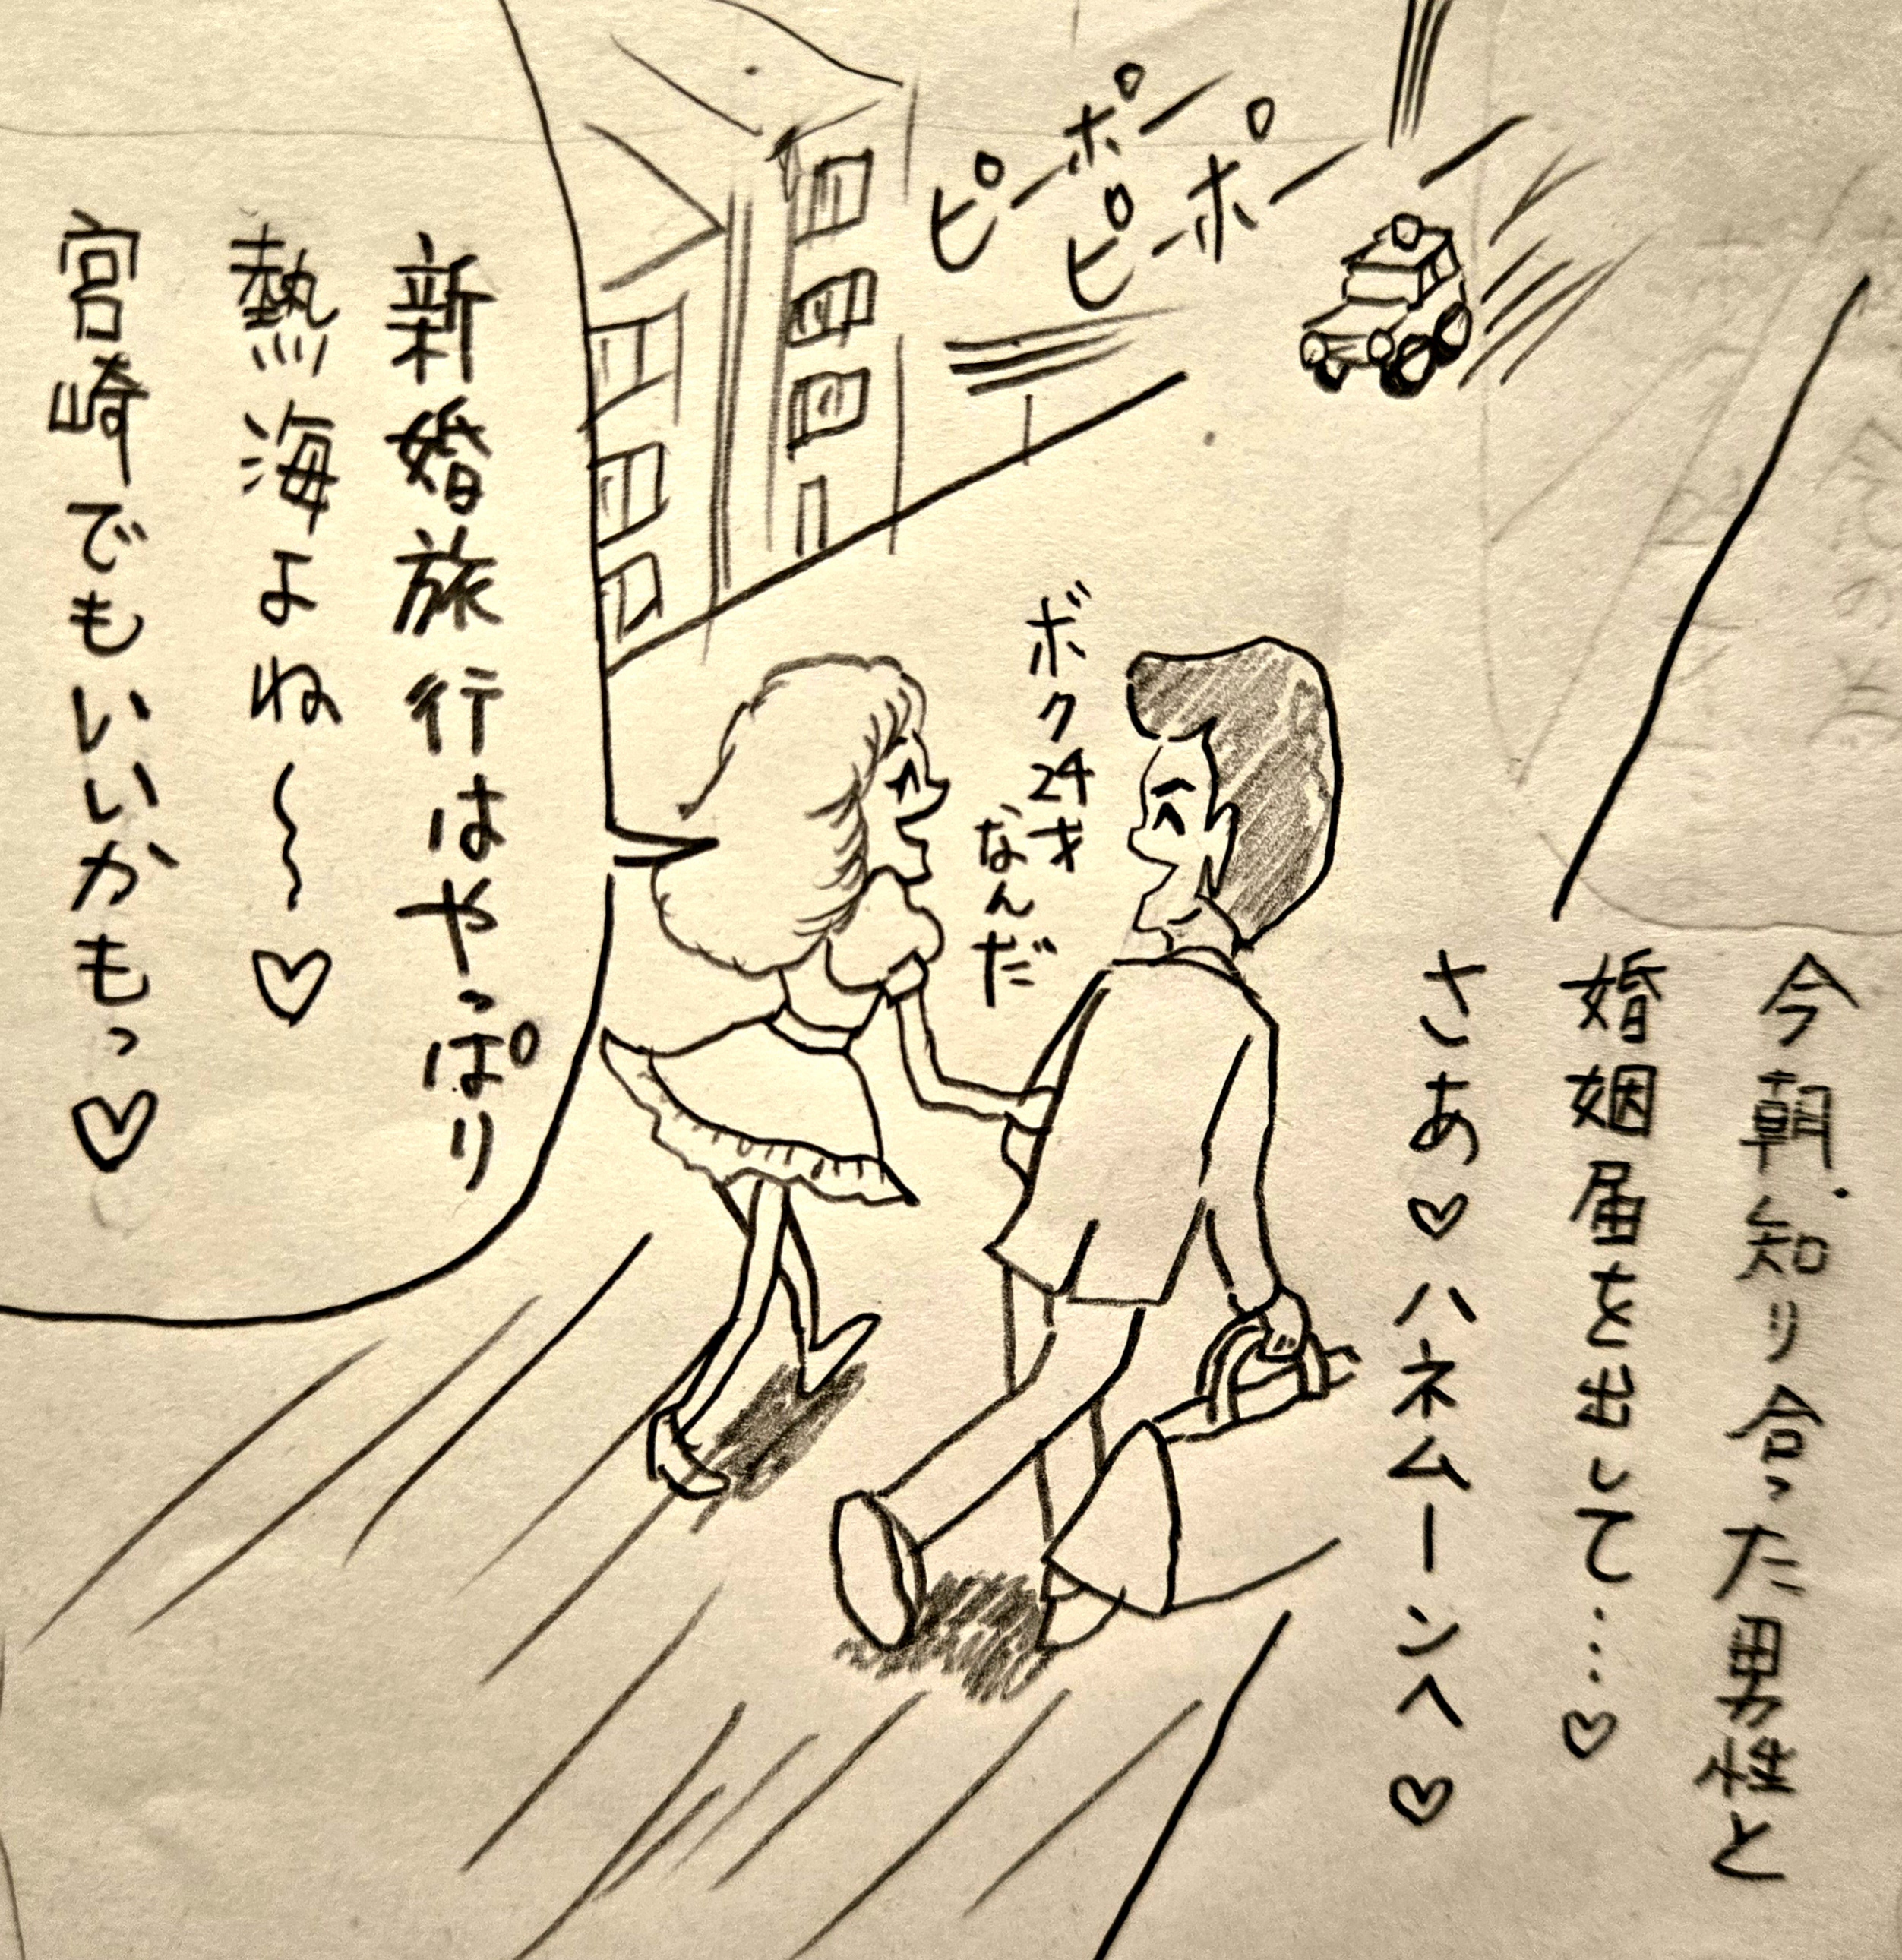 今朝知り合った男性と
婚姻届を出して…♡
さあ♡ハネムーンへ♡
ピーポー
ピーポー
ボク24才
なんだ
新婚旅行はやっぱり
熱海よね〜♡
宮崎でもいいかもっ♡